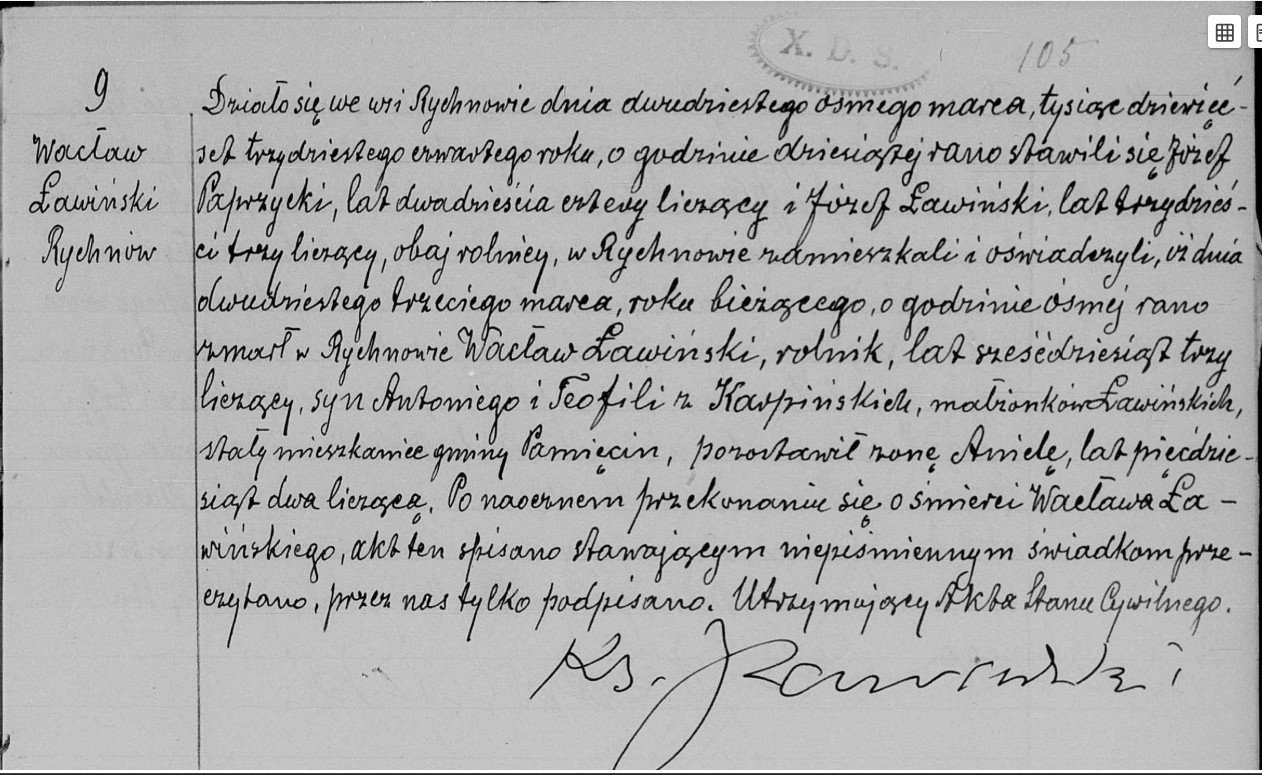 X. D. S.
105
9
Wacław
Ławiński
Rychnów
Działo się we wsi Rychnowie dnia dwudziestego ósmego marca, tysiąc dziewięć-
set trzydziestego czwartego roku, o godzinie dziesiątej rano stawili się Józef
Paprzycki, lat dwadzieścia cztery liczący i Józef Ławiński, lat trzydzieś-
ci trzy liczący, obaj rolnicy, w Rychnowie zamieszkali i oświadczyli, iż dnia
dwudziestego trzeciego marca, roku bieżącego, o godzinie ósmej rano
zmarł w Rychnowie Wacław Ławiński, rolnik, lat sześćdziesiąt trzy
liczący, syn Antoniego i Teofili z Karpińskich, małżonków Ławińskich,
stały mieszkaniec gminy Pamięcin, pozostawił żonę Anielę, lat pięćdzie-
siąt dwa liczącą. Po naocznem przekonaniu się o śmierci Wacława Ła-
wińskiego, akt ten spisano stawającym niepiśmiennym świadkom prze-
czytano, przez nas tylko podpisano. Utrzymujący Akta Stanu Cywilnego.
Ks. J